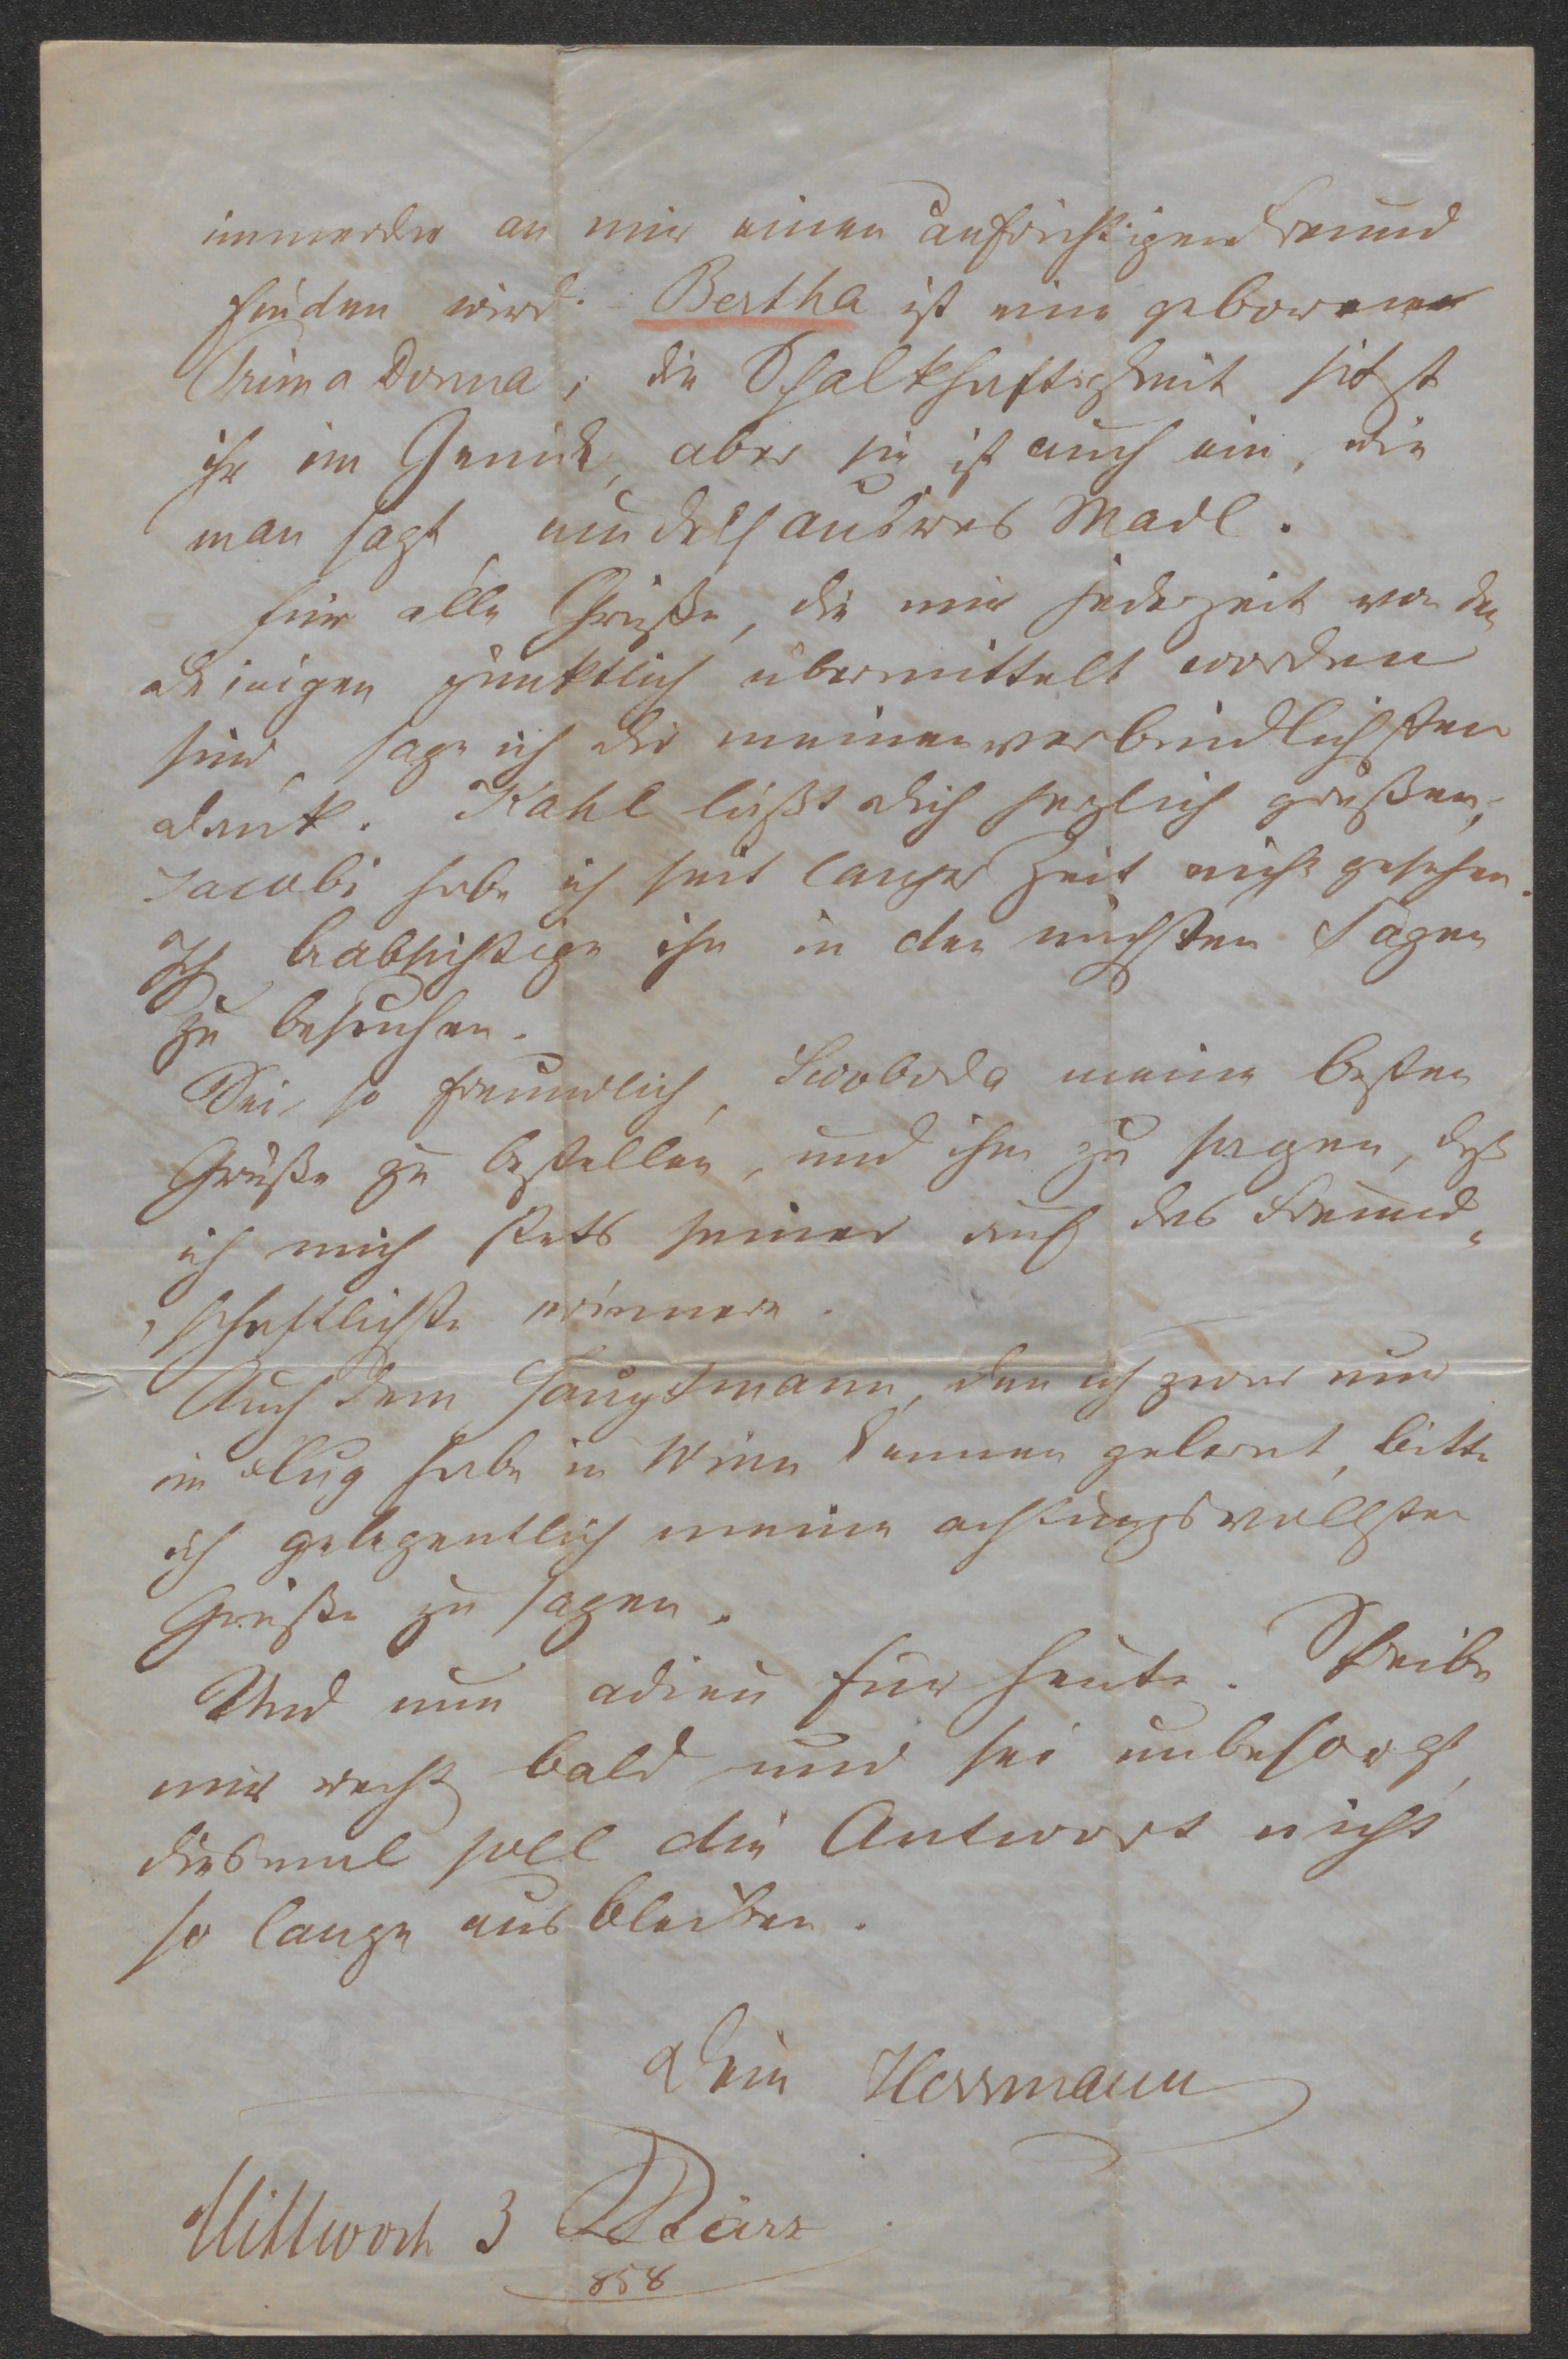 immerdar an mir einen aufrichtigen Freund
finden wird. – Bertha ist eine geborene
Prima Donna, die Schalkhaftigkeit sitzt
ihr im Genick, aber sie ist auch ein, wie
man sagt, sauberes Madl.
Für alle Grüße, die mir jederzeit von den
Deinigen pünktlich übermittelt worden
sind, sage ich Dir meinen verbindlichsten
Dank. Kahl läßt Dich herzlich grüßen,
Jacobi habe ich seit langer Zeit nicht gesehen.
Ich beabsichtige ihn in den nächsten Tagen
zu besuchen.
Sei so freundlich, Swoboda meine besten
Grüße zu bestellen, und ihm zu sagen, daß
ich mich stets seiner auf das Freund-
schaftlichste erinnere.
Auch dem Hauptmann, den ich zwar nur
im Flug habe in Wien kennen gelernt, bitte
ich gelegentlich meine achtungsvollsten
Grüße zu sagen.
Und nun adieu für heute. Schreibe
mir recht bald und sei unbesorgt,
diesmal soll die Antwort nicht
so lange ausbleiben.
Dein Herrmann
Mittwoch 3 März
858